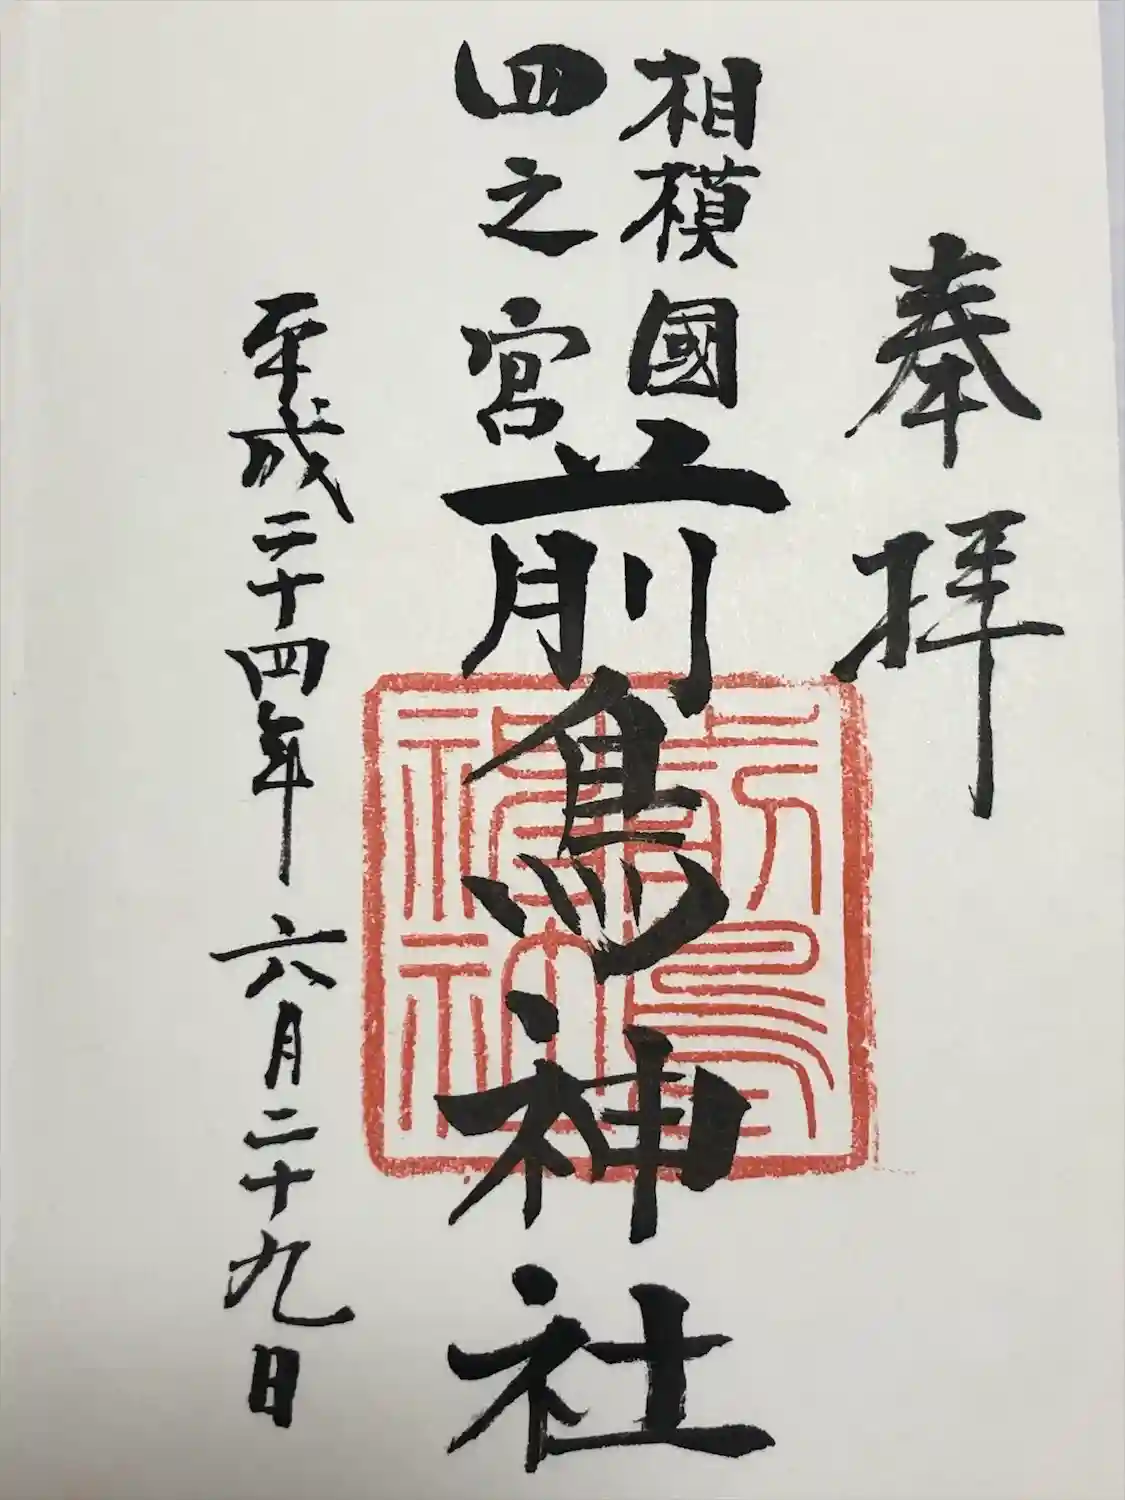 奉拝
相模國
四之宮
前鳥神社
平成二十四年六月二十九日
前鳥
神社